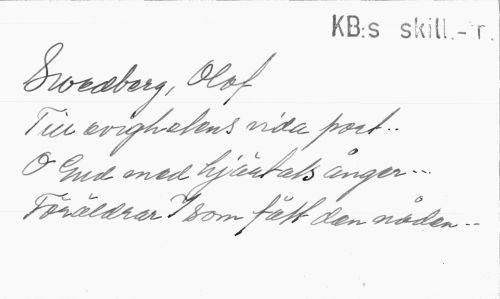 KB:s skill.-r.
Swedberg, Olof
Till evighetens vida port..
O Gud med hjärtats ånger...
Föräldrar som fått den nåden...